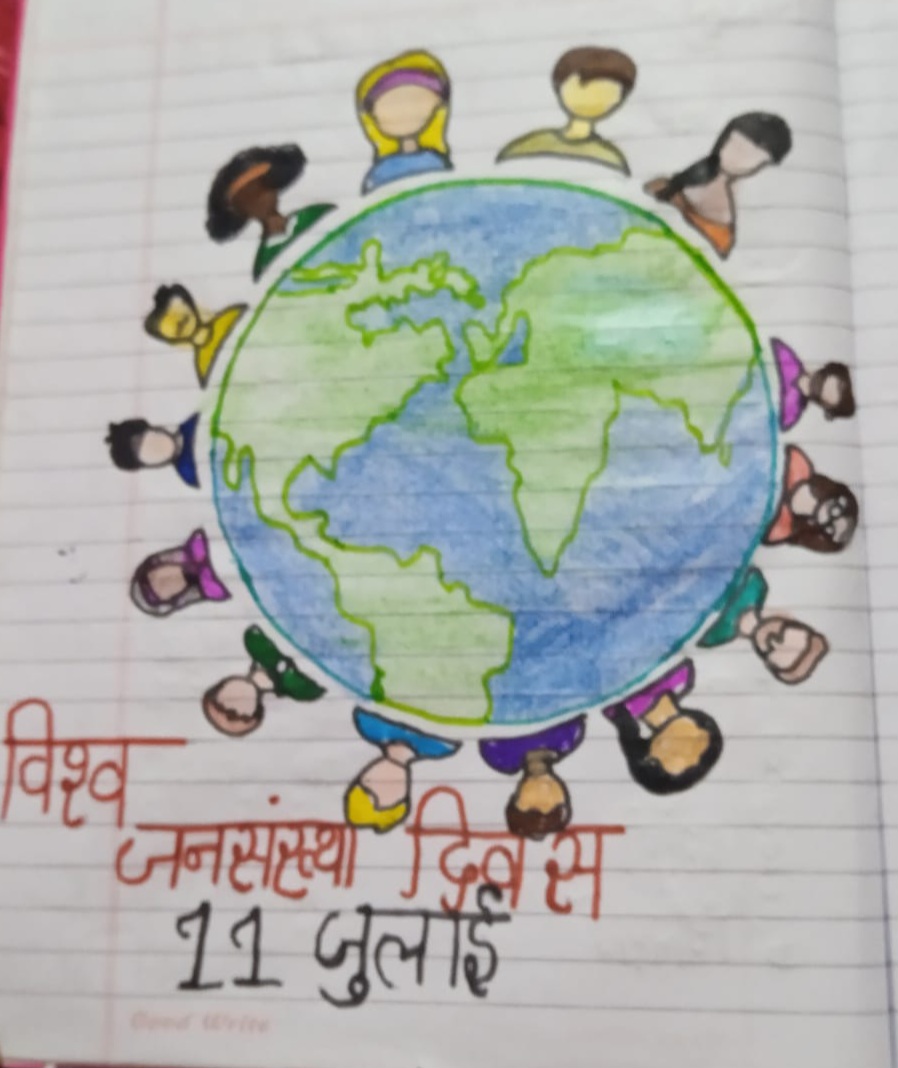 विश्व
जनसंस्था दिवस
11 जुलाई
Good Write